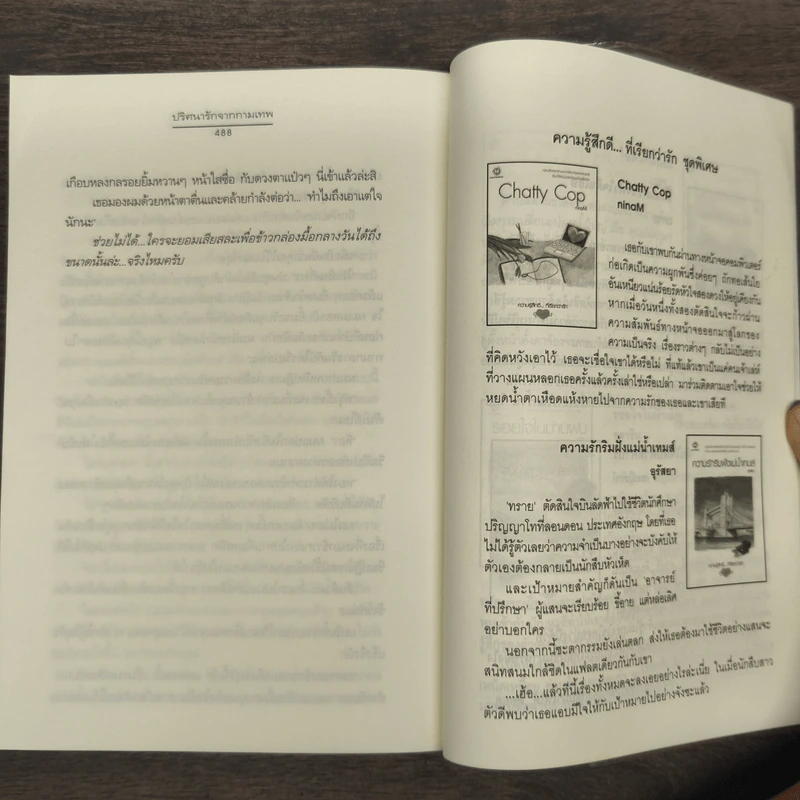 ปริศนารักจากกามเทพ
488
เกือบหลงกลรอยยิ้มหวานๆ หน้าใสซื่อ กับดวงตาแป๋วๆ นี่เข้าแล้วล่ะสิ
เธอมองผมด้วยหน้าตาตื่นและคล้ายกำลังต่อว่า... 'ทำไมถึงเอาแต่ใจ
นักนะ'
ช่วยไม่ได้...ใครจะยอมเสียสละเพื่อข้าวกล่องมื้อกลางวันได้ถึง
ขนาดนั้นล่ะ...จริงไหมครับ
ความรู้สึกดี... ที่เรียกว่ารัก ชุดพิเศษ
Chatty Cop
ninaM
Chatty Cop
ninaM
เธอกับเขาพบกันผ่านทางหน้าจอคอมพิวเตอร์
ก่อเกิดเป็นความผูกพันซึ่งค่อยๆ ถักทอเส้นใย
อันเหนียวแน่นร้อยรัดหัวใจสองดวงให้อยู่เคียงกัน
หากเมื่อวันหนึ่งทั้งสองตัดสินใจจะก้าวผ่าน
ความสัมพันธ์ทางหน้าจอออกมาสู่โลกของ
ความเป็นจริง เรื่องราวต่างๆ กลับไม่เป็นอย่าง
ที่คิดหวังเอาไว้ เธอจะเชื่อใจเขาได้หรือไม่ ที่แท้แล้วเขาเป็นแค่คนเจ้าเล่ห์
ที่วางแผนหลอกเธอครั้งแล้วครั้งเล่าใช่หรือเปล่า มาร่วมติดตามเอาใจช่วยให้
หยดน้ำตาเหือดแห้งหายไปจากความรักของเธอและเขาเสียที
ความรักริมฝั่งแม่น้ำเทมส์
อุรัสยา
ความรักริมฝั่งแม่น้ำเทมส์
'ทราย' ตัดสินใจบินลัดฟ้าไปใช้ชีวิตนักศึกษา
ปริญญาโทที่ลอนดอน ประเทศอังกฤษ โดยที่เธอ
ไม่ได้รู้ตัวเลยว่าความจำเป็นบางอย่างจะบังคับให้
ตัวเองต้องกลายเป็นนักสืบหัวเห็ด
และเป้าหมายสำคัญก็ดันเป็น 'อาจารย์
ที่ปรึกษา' ผู้แสนจะเรียบร้อย ขี้อาย แต่หล่อเลิศ
อย่าบอกใคร
นอกจากนี้ชะตากรรมยังเล่นตลก ส่งให้เธอต้องมาใช้ชีวิตอย่างแสนจะ
สนิทสนมใกล้ชิดในแฟลตเดียวกันกับเขา
...เฮ้อ...แล้วทีนี้เรื่องทั้งหมดจะลงเอยอย่างไรล่ะเนี่ย ในเมื่อนักสืบสาว
ตัวดีพบว่าเธอแอบมีใจให้กับเป้าหมายไปอย่างจังซะแล้ว